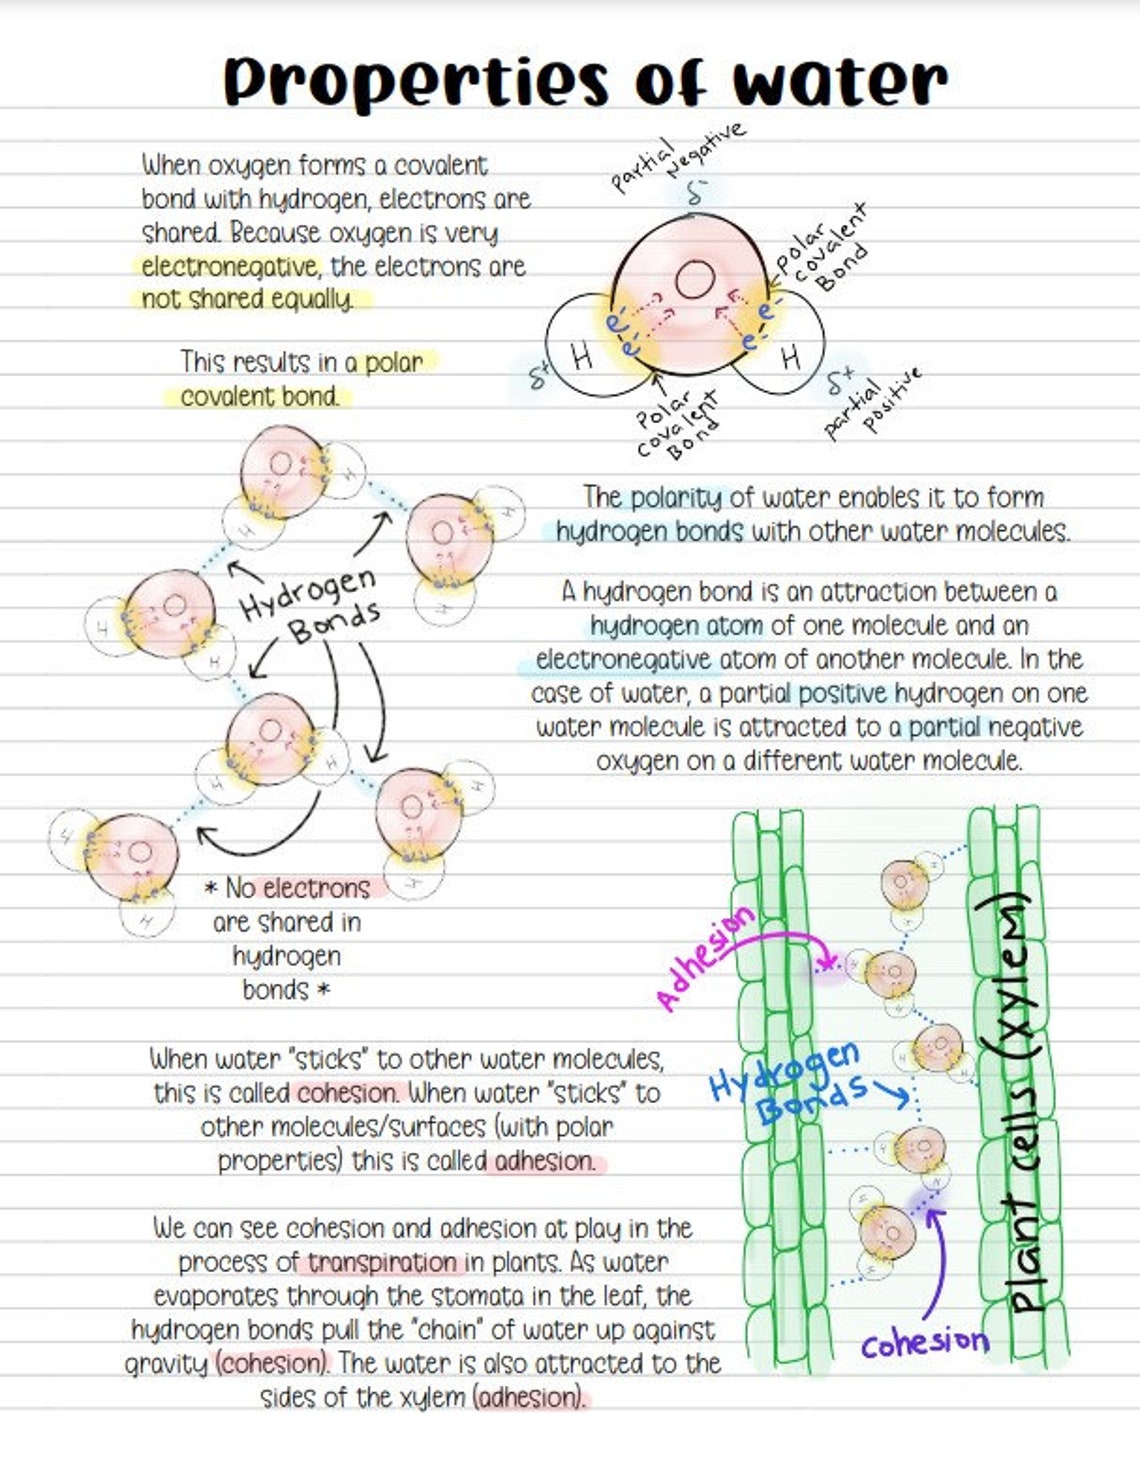 Properties of water
When oxygen forms a covalent
bond with hydrogen, electrons are
shared. Because oxygen is very
electronegative, the electrons are
not shared equally.
This results in a polar
covalent bond.
partial
negative
δ-
polar
covalent
Bond
e-
e-
e-
e-
H
H
δ+
δ+
partial
positive
Polar
covalent
Bond
The polarity of water enables it to form
hydrogen bonds with other water molecules.
A hydrogen bond is an attraction between a
hydrogen atom of one molecule and an
electronegative atom of another molecule. In the
case of water, a partial positive hydrogen on one
water molecule is attracted to a partial negative
oxygen on a different water molecule.
H
H
H
H
Hydrogen
Bonds
H
H
H
H
H
H
H
H
* No electrons
are shared in
hydrogen
bonds *
When water "sticks" to other water molecules,
this is called cohesion. When water "sticks" to
other molecules/surfaces (with polar
properties) this is called adhesion.
We can see cohesion and adhesion at play in the
process of transpiration in plants. As water
evaporates through the stomata in the leaf, the
hydrogen bonds pull the "chain" of water up against
gravity (cohesion). The water is also attracted to the
sides of the xylem (adhesion).
Adhesion
Hydrogen
Bonds
H
H
H
H
H
H
H
H
H
H
Plant cells (xylem)
cohesion